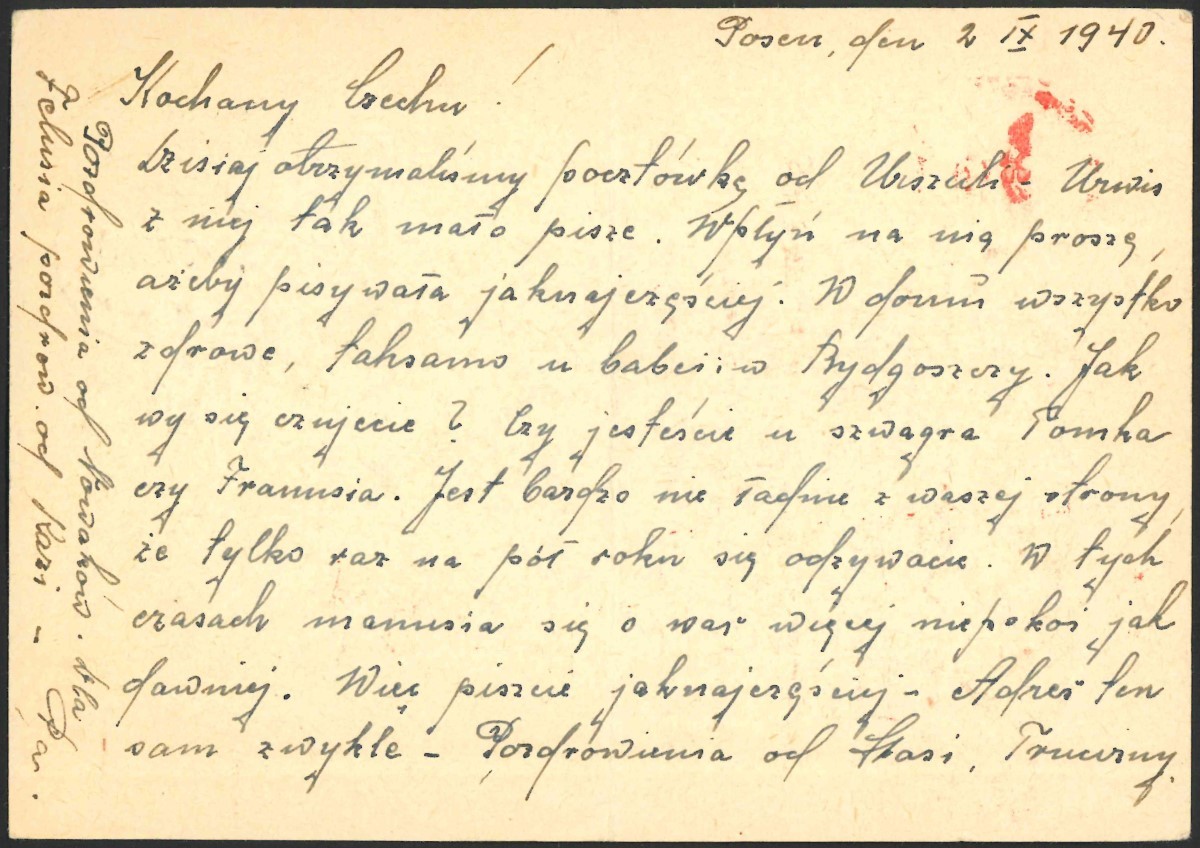 Posen, den 2 IX 1940.
Kochany Czechu!
Dzisiaj otrzymaliśmy pocztówkę od Urszuli - Urwis
z niej tak mało pisze. Wpłyń na nią proszę,
ażeby pisywała jaknajczęściej. W domu wszystko
zdrowe, taksamo u babci i w Bydgoszczy. Jak
wy się czujecie? Czy jesteście u szwagra Tomka
czy Franusia. Jest bardzo nie ładnie z waszej strony,
że tylko raz na pół roku się odzywacie. W tych
czasach mamusia się o was więcej niepokoi jak
dawniej. Więc piszcie jaknajczęściej - Adres ten
sam zwykle - Pozdrowienia od Stasi, Truczny,
Pozdrowienia od Nowaków. Dla
Felusia pozdrow. od Kazi -